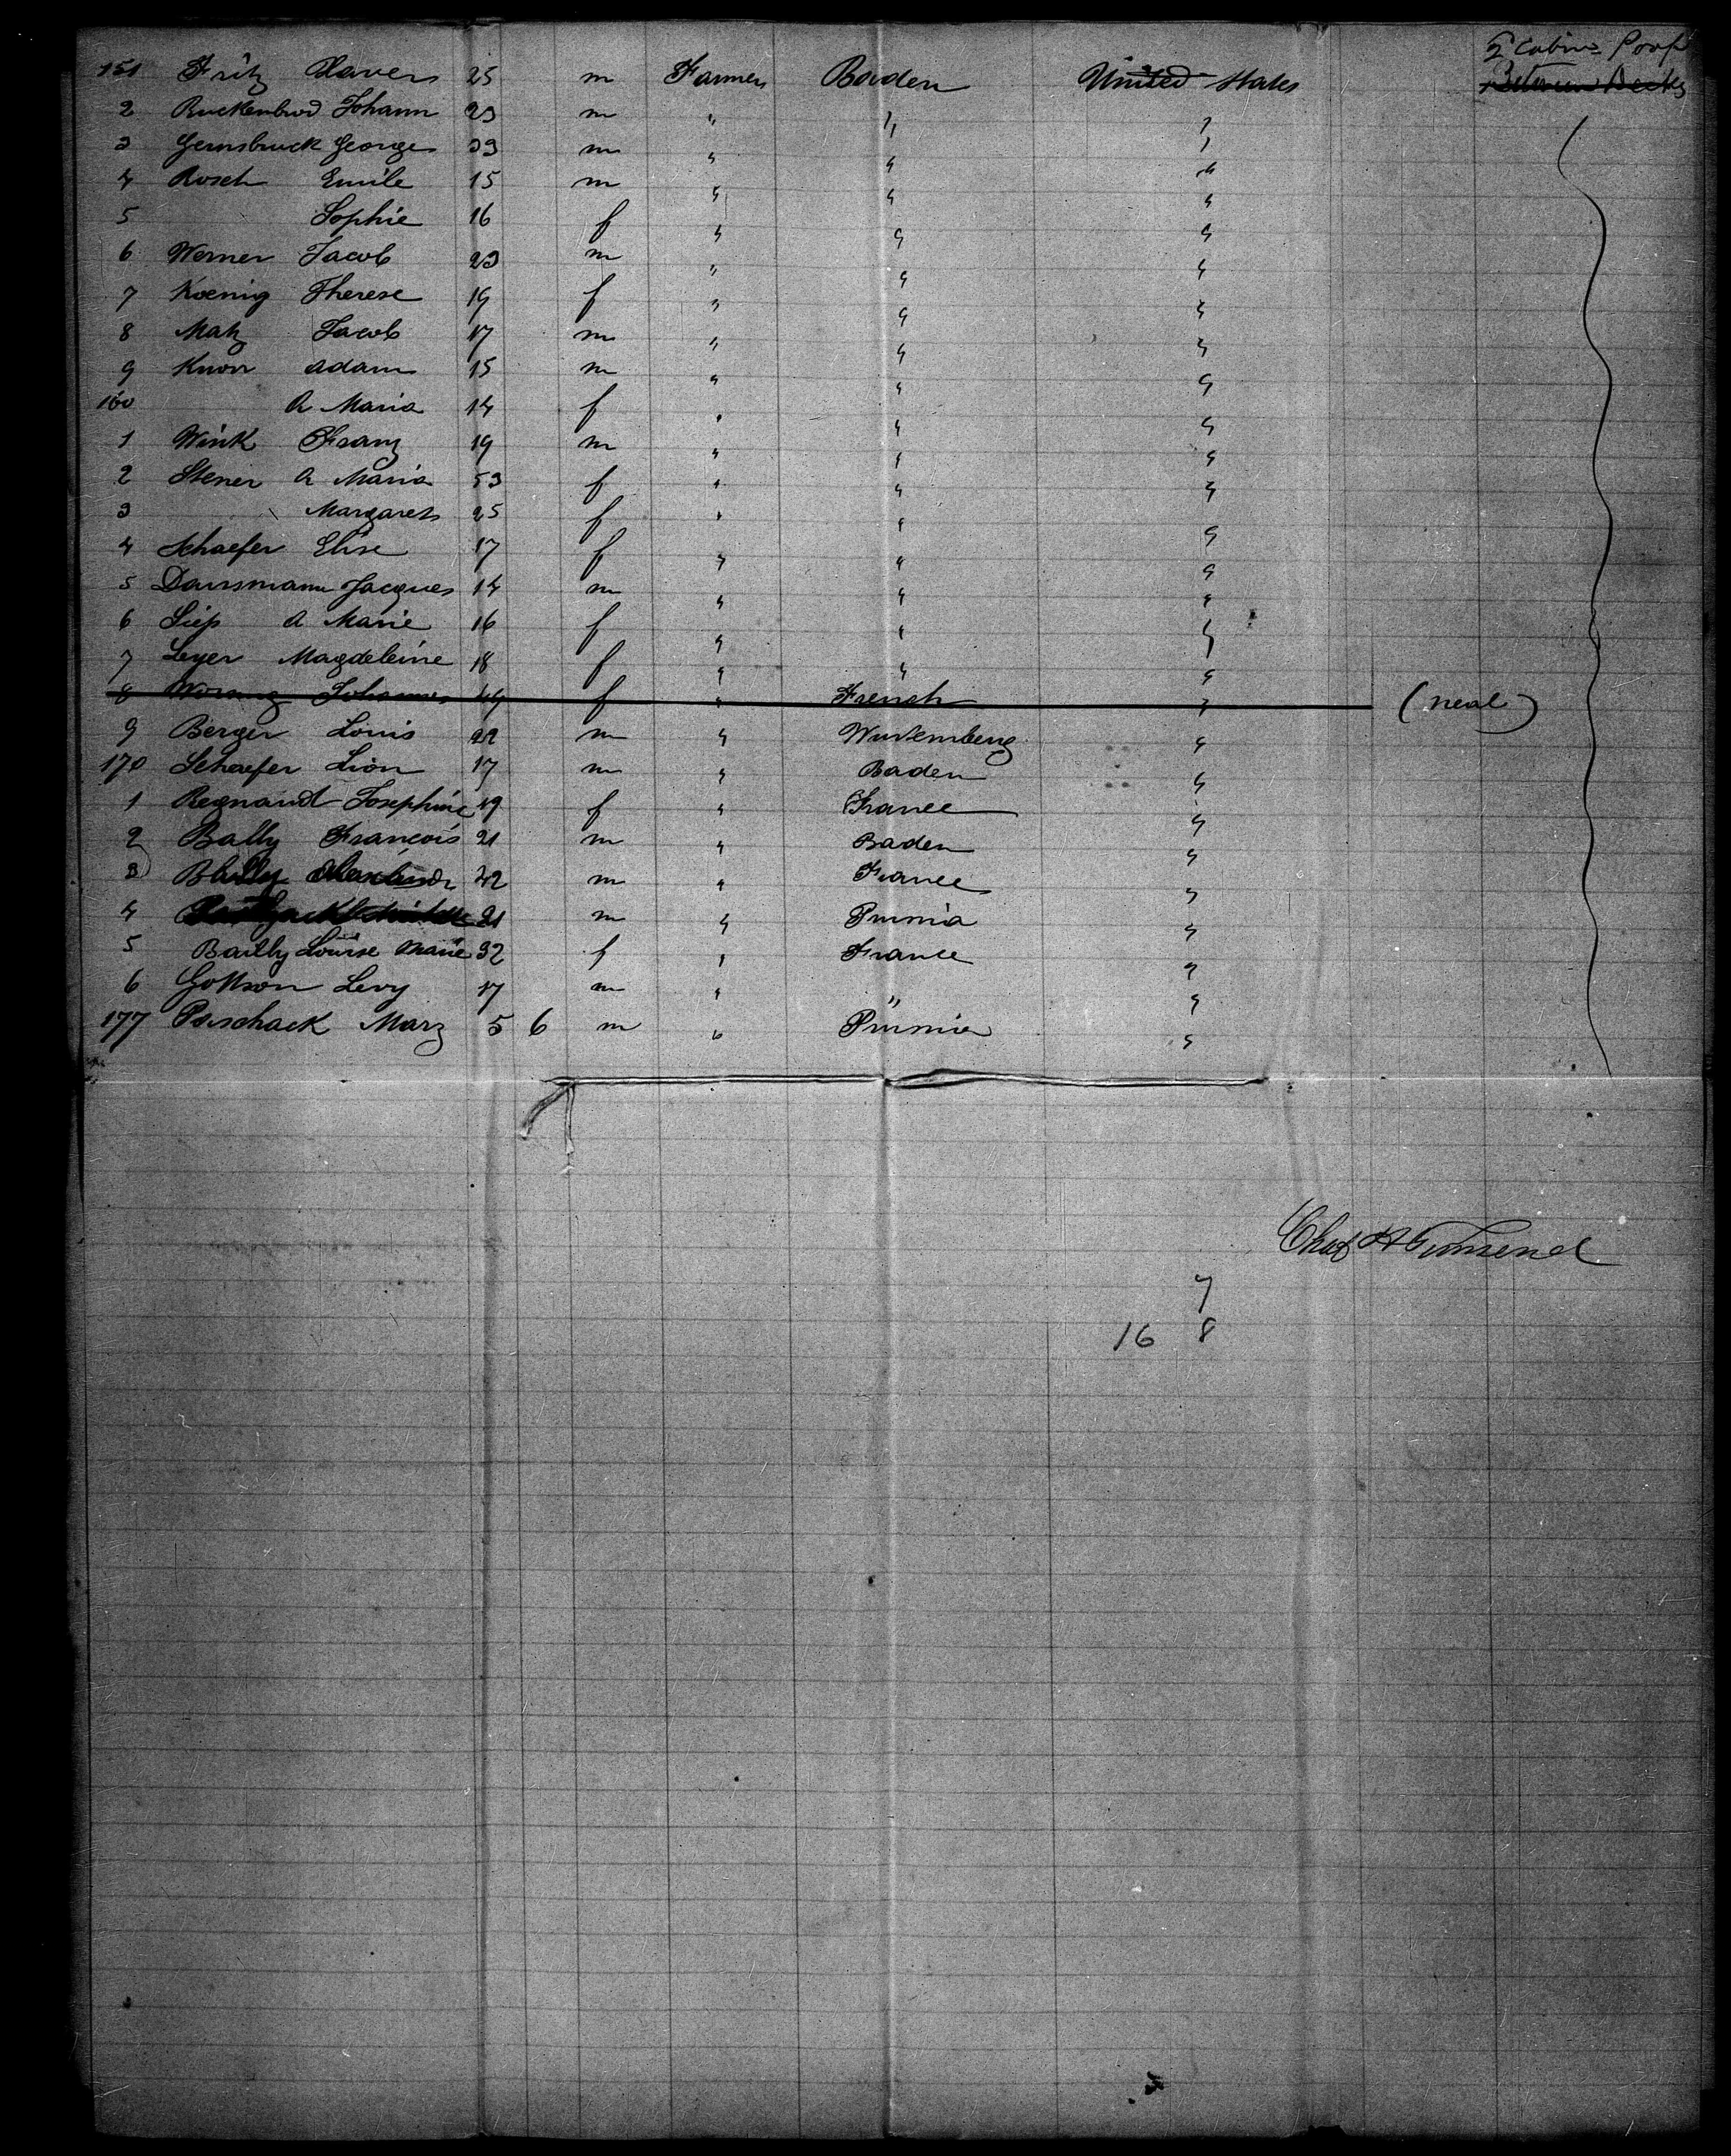 2 Cabin Poop
151 Fritz Xaver 25 m Farmer Baden United States Between Decks
2 Ruckenbrod Johann 23 m " " "
3 Gernsbruck George 33 m " " "
4 Rosch Emile 15 m " " "
5 Sophie 16 f " " "
6 Werner Jacob 23 m " " "
7 Koenig Therese 19 f " " "
8 Matz Jacob 17 m " " "
9 Knorr Adam 15 m " " "
160 A Maria 14 f " " "
1 Wink Franz 19 m " " "
2 Stener A Maria 53 f " " "
3 Margareth 25 f " " "
4 Schaefer Elise 17 f " " "
5 Dausmann Jacques 14 m " " "
6 Siep A Marie 16 f " " "
7 Leyer Magdeleine 18 f " " "
8 Johannes 44 f " French " (neal)
9 Berger Louis 22 m " Wurtemberg "
170 Schaefer Lion 17 m " Baden "
1 Regnault Josephine 19 f " France "
2 Bally Francois 21 m " Baden "
3 42 m " France "
4 21 m " Prussia "
5 Bailly Louise Marie 32 f " France "
6 Gottson Levy 17 m " " "
177 Paschack Marz 5 6 m " Prussia "
Chas H Townsend
7
16 8